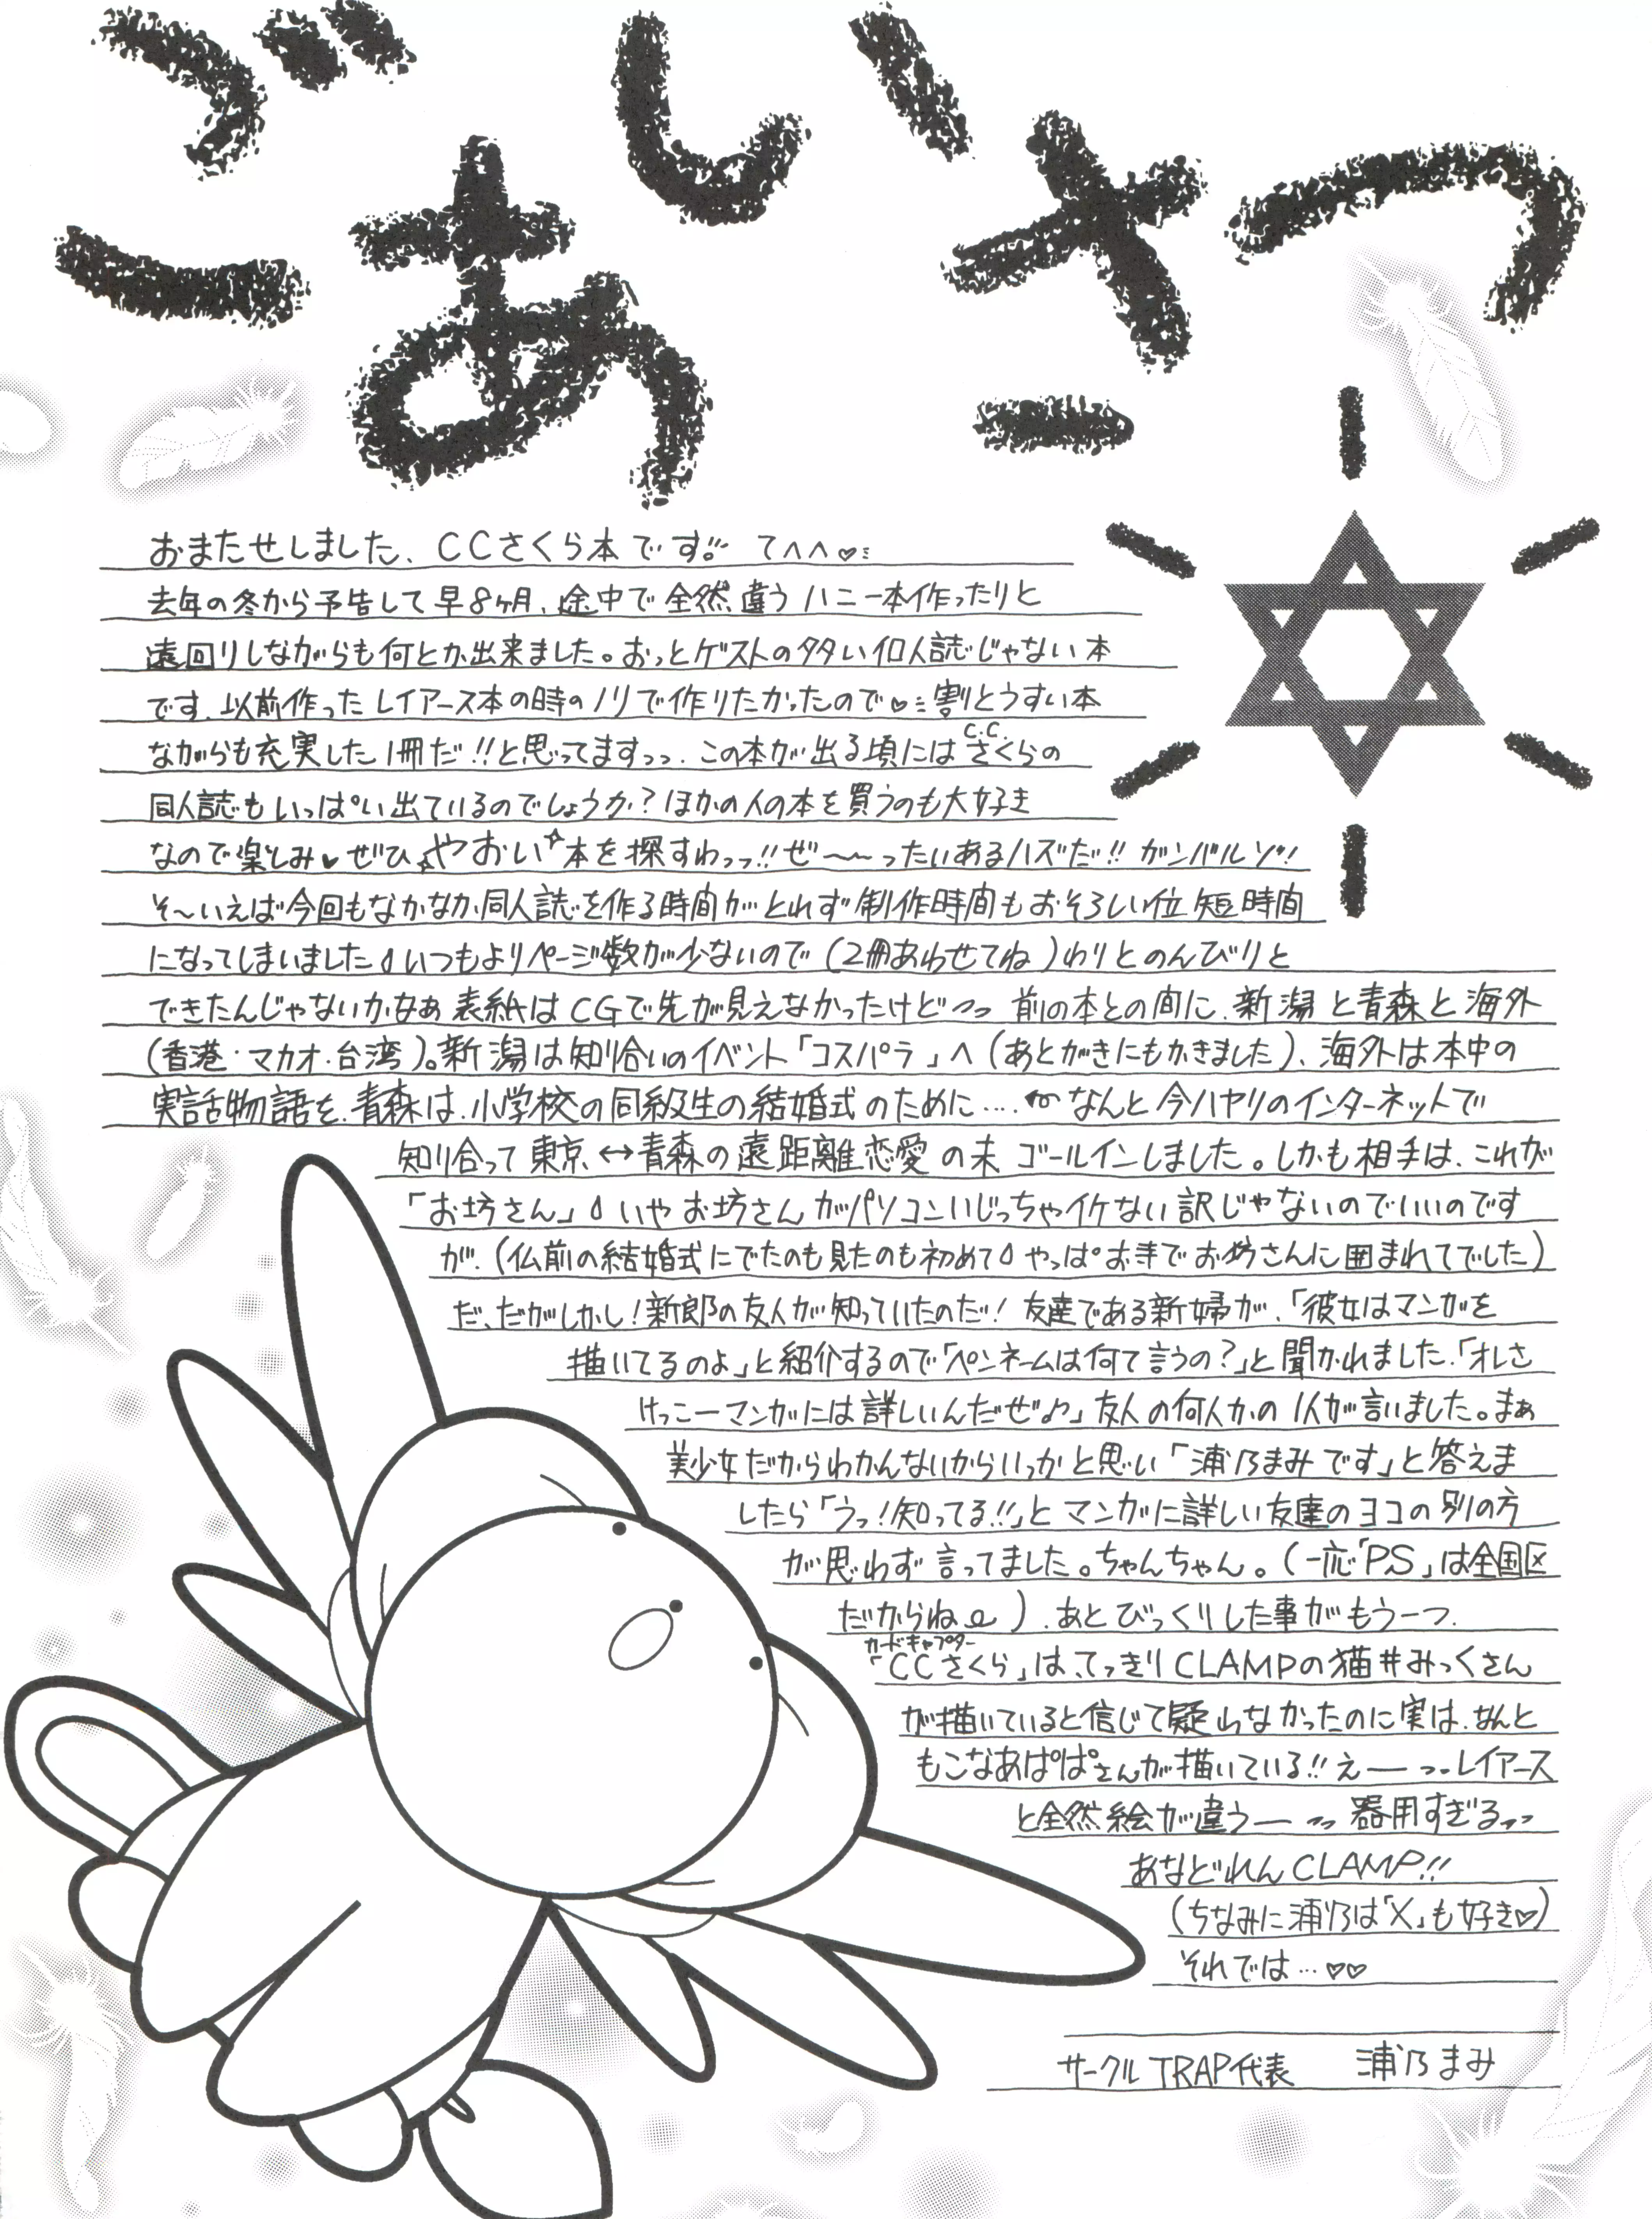 ごあいさつ
おまたせしました、CCさくら本です!! てへへ♡
去年の冬から予告して早8ヶ月、途中で全然違うハニー本作ったりと
遠回りしながらも何とか出来ました。おっとゲストの多い個人誌じゃない本
です、以前作ったレイアース本の時のノリで作りたかったので♡割とうすい本
ながらも充実した1冊だ!!と思ってますっっ、この本が出る頃にはC.C.さくらの
同人誌もいっぱい出ているのでしょうか?ほかの人の本を買うのも大好き
なので楽しみ♥ぜひ、やおい本を探すわっっ!!ぜ〜〜ったいあるハズだ!!ガンバルゾ!!
そ〜いえば今回もなかなか同人誌を作る時間がとれず制作時間もおそろしい位短時間
になってしまいました いつもよりページ数が少ないので(2冊あわせてね)わりとのんびりと
できたんじゃないかなぁ 表紙はCGで先が見えなかったけどっっ 前の本との間に、新潟と青森と海外
(香港・マカオ・台湾)。新潟は知り合いのイベント「コスパラ」へ(あとがきにもかきました)、海外は本中の
実話物語を、青森は、小学校の同級生の結婚式のために‥‥ なんと今ハヤリのインターネットで
知り合って東京↔青森の遠距離恋愛の末 ゴールインしました。しかも相手は、これが
「お坊さん」いやお坊さんがパソコンいじっちゃイケない訳じゃないのでいいのです
が、(仏前の結婚式にでたのも見たのも初めて やっぱお寺でお坊さんに囲まれてでした)
だ、だがしかし!新郎の友人が知っていたのだ!友達である新婦が、「彼女はマンガを
描いてるのよ」と紹介するので「ペンネームは何て言うの?」と聞かれました、「オレさ
けっこーマンガには詳しいんだぜ♪」友人の何人かの1人が言いました。まぁ
美少女だからわかんないからいっかと思い「浦乃まみです」と答えま
したら「うっ!知ってる!!」とマンガに詳しい友達のヨコの別の方
が思わず言ってました。ちゃんちゃん。(一応「PS」は全国区
だからね)、あとびっくりした事がもう一つ、
カードキャプター
「CCさくら」は、てっきりCLAMPの猫井みっくさん
が描いていると信じて疑わなかったのに実は、なんと
もこなあぱぱさんが描いている!!えーっっレイアース
と全然絵が違うーっっ 器用すぎるっっ
あなどれんCLAMP!!
(ちなみに浦乃は「X」も好き♡)
それでは…♡♡
サークルTRAP代表 浦乃まみ